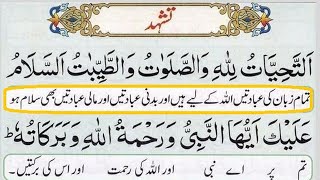 تشہد
اَلتَّحِيَّاتُ لِلّٰهِ وَالصَّلَوٰتُ وَالطَّيِّبٰتُ اَلسَّلَامُ
تمام زبان کی عبادتیں اللہ کے لیے ہیں اور بدنی عبادتیں اور مالی عبادتیں بھی سلام ہو
عَلَيْكَ اَيُّهَا النَّبِيُّ وَرَحْمَةُ اللّٰهِ وَبَرَكَاتُهٗ ط
تم پر اے نبی اور اللہ کی رحمت اور اس کی برکتیں۔